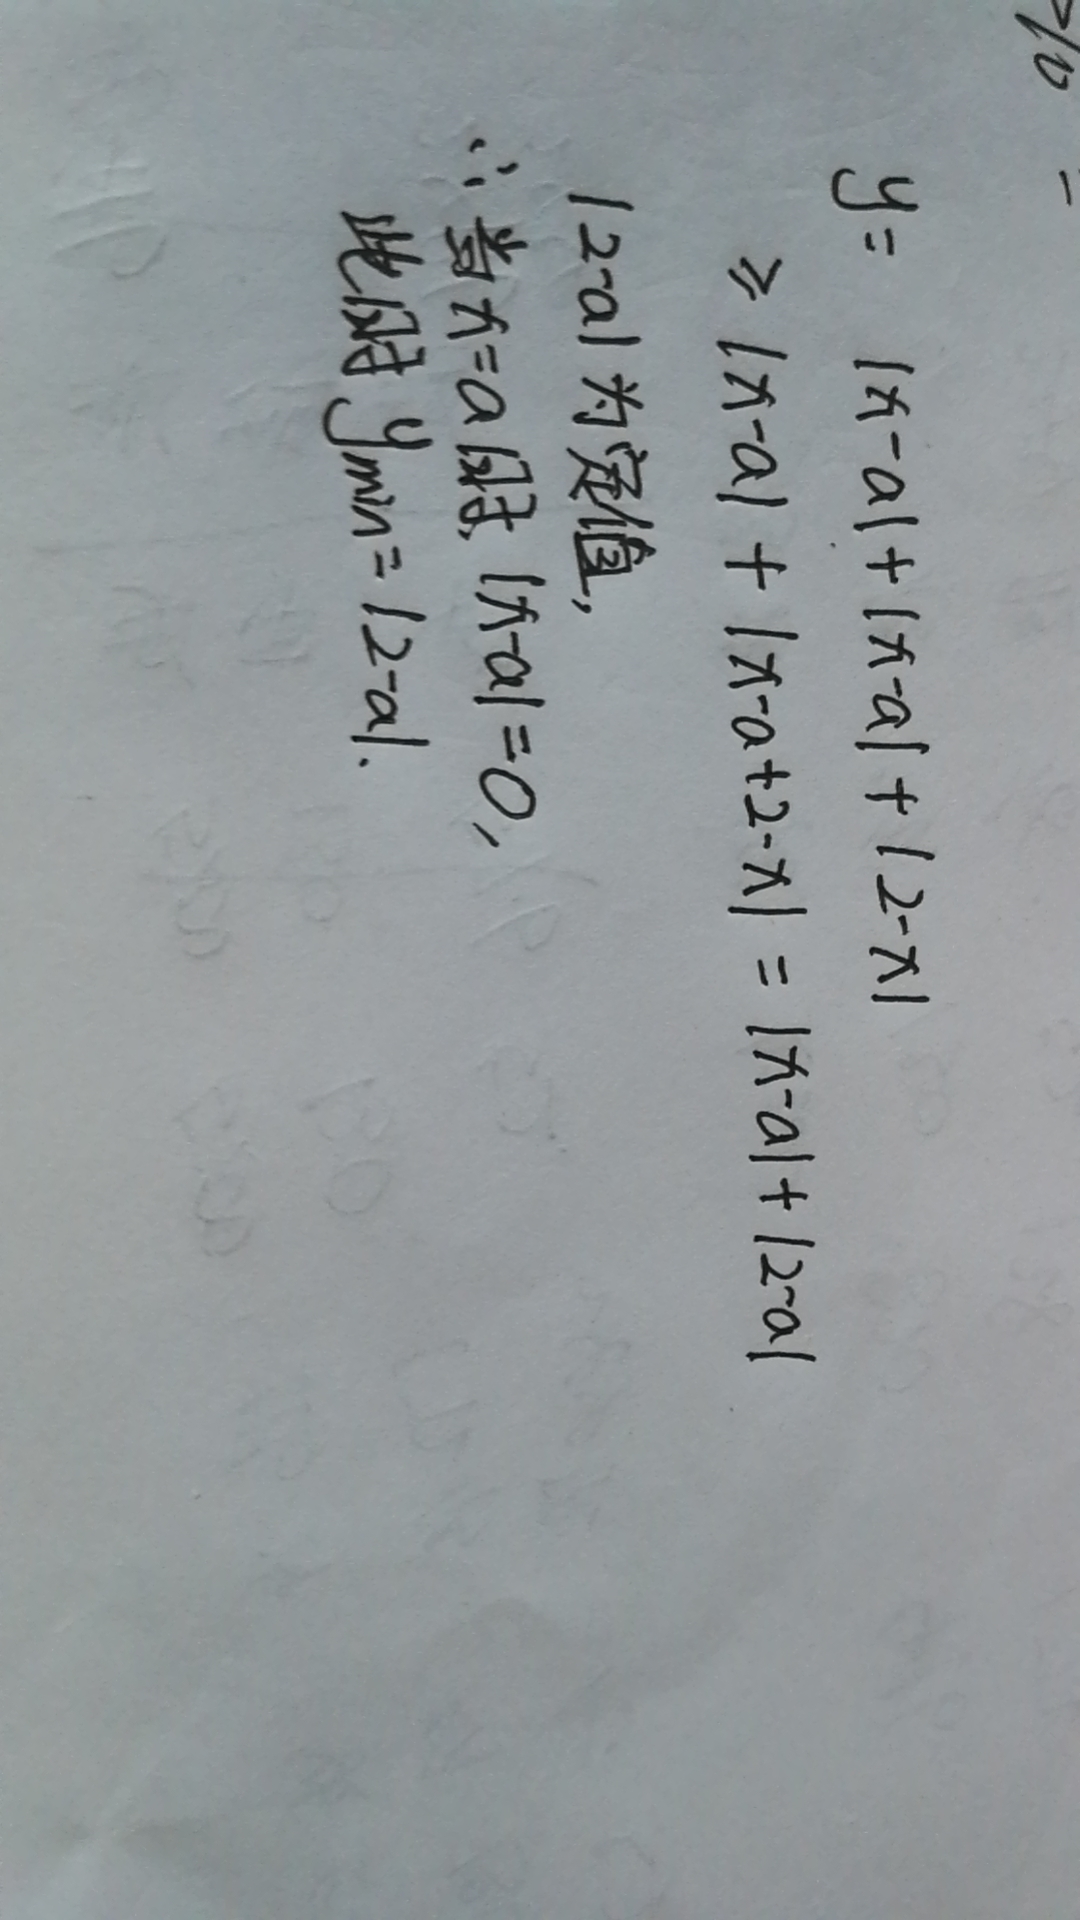 y= |x-a|+|x-a|+|2-x|
≥ |x-a| + |x-a+2-x| = |x-a|+|2-a|
|2-a|为定值,
∴当x=a时, |x-a|=0,
此时 ymin=|2-a|.